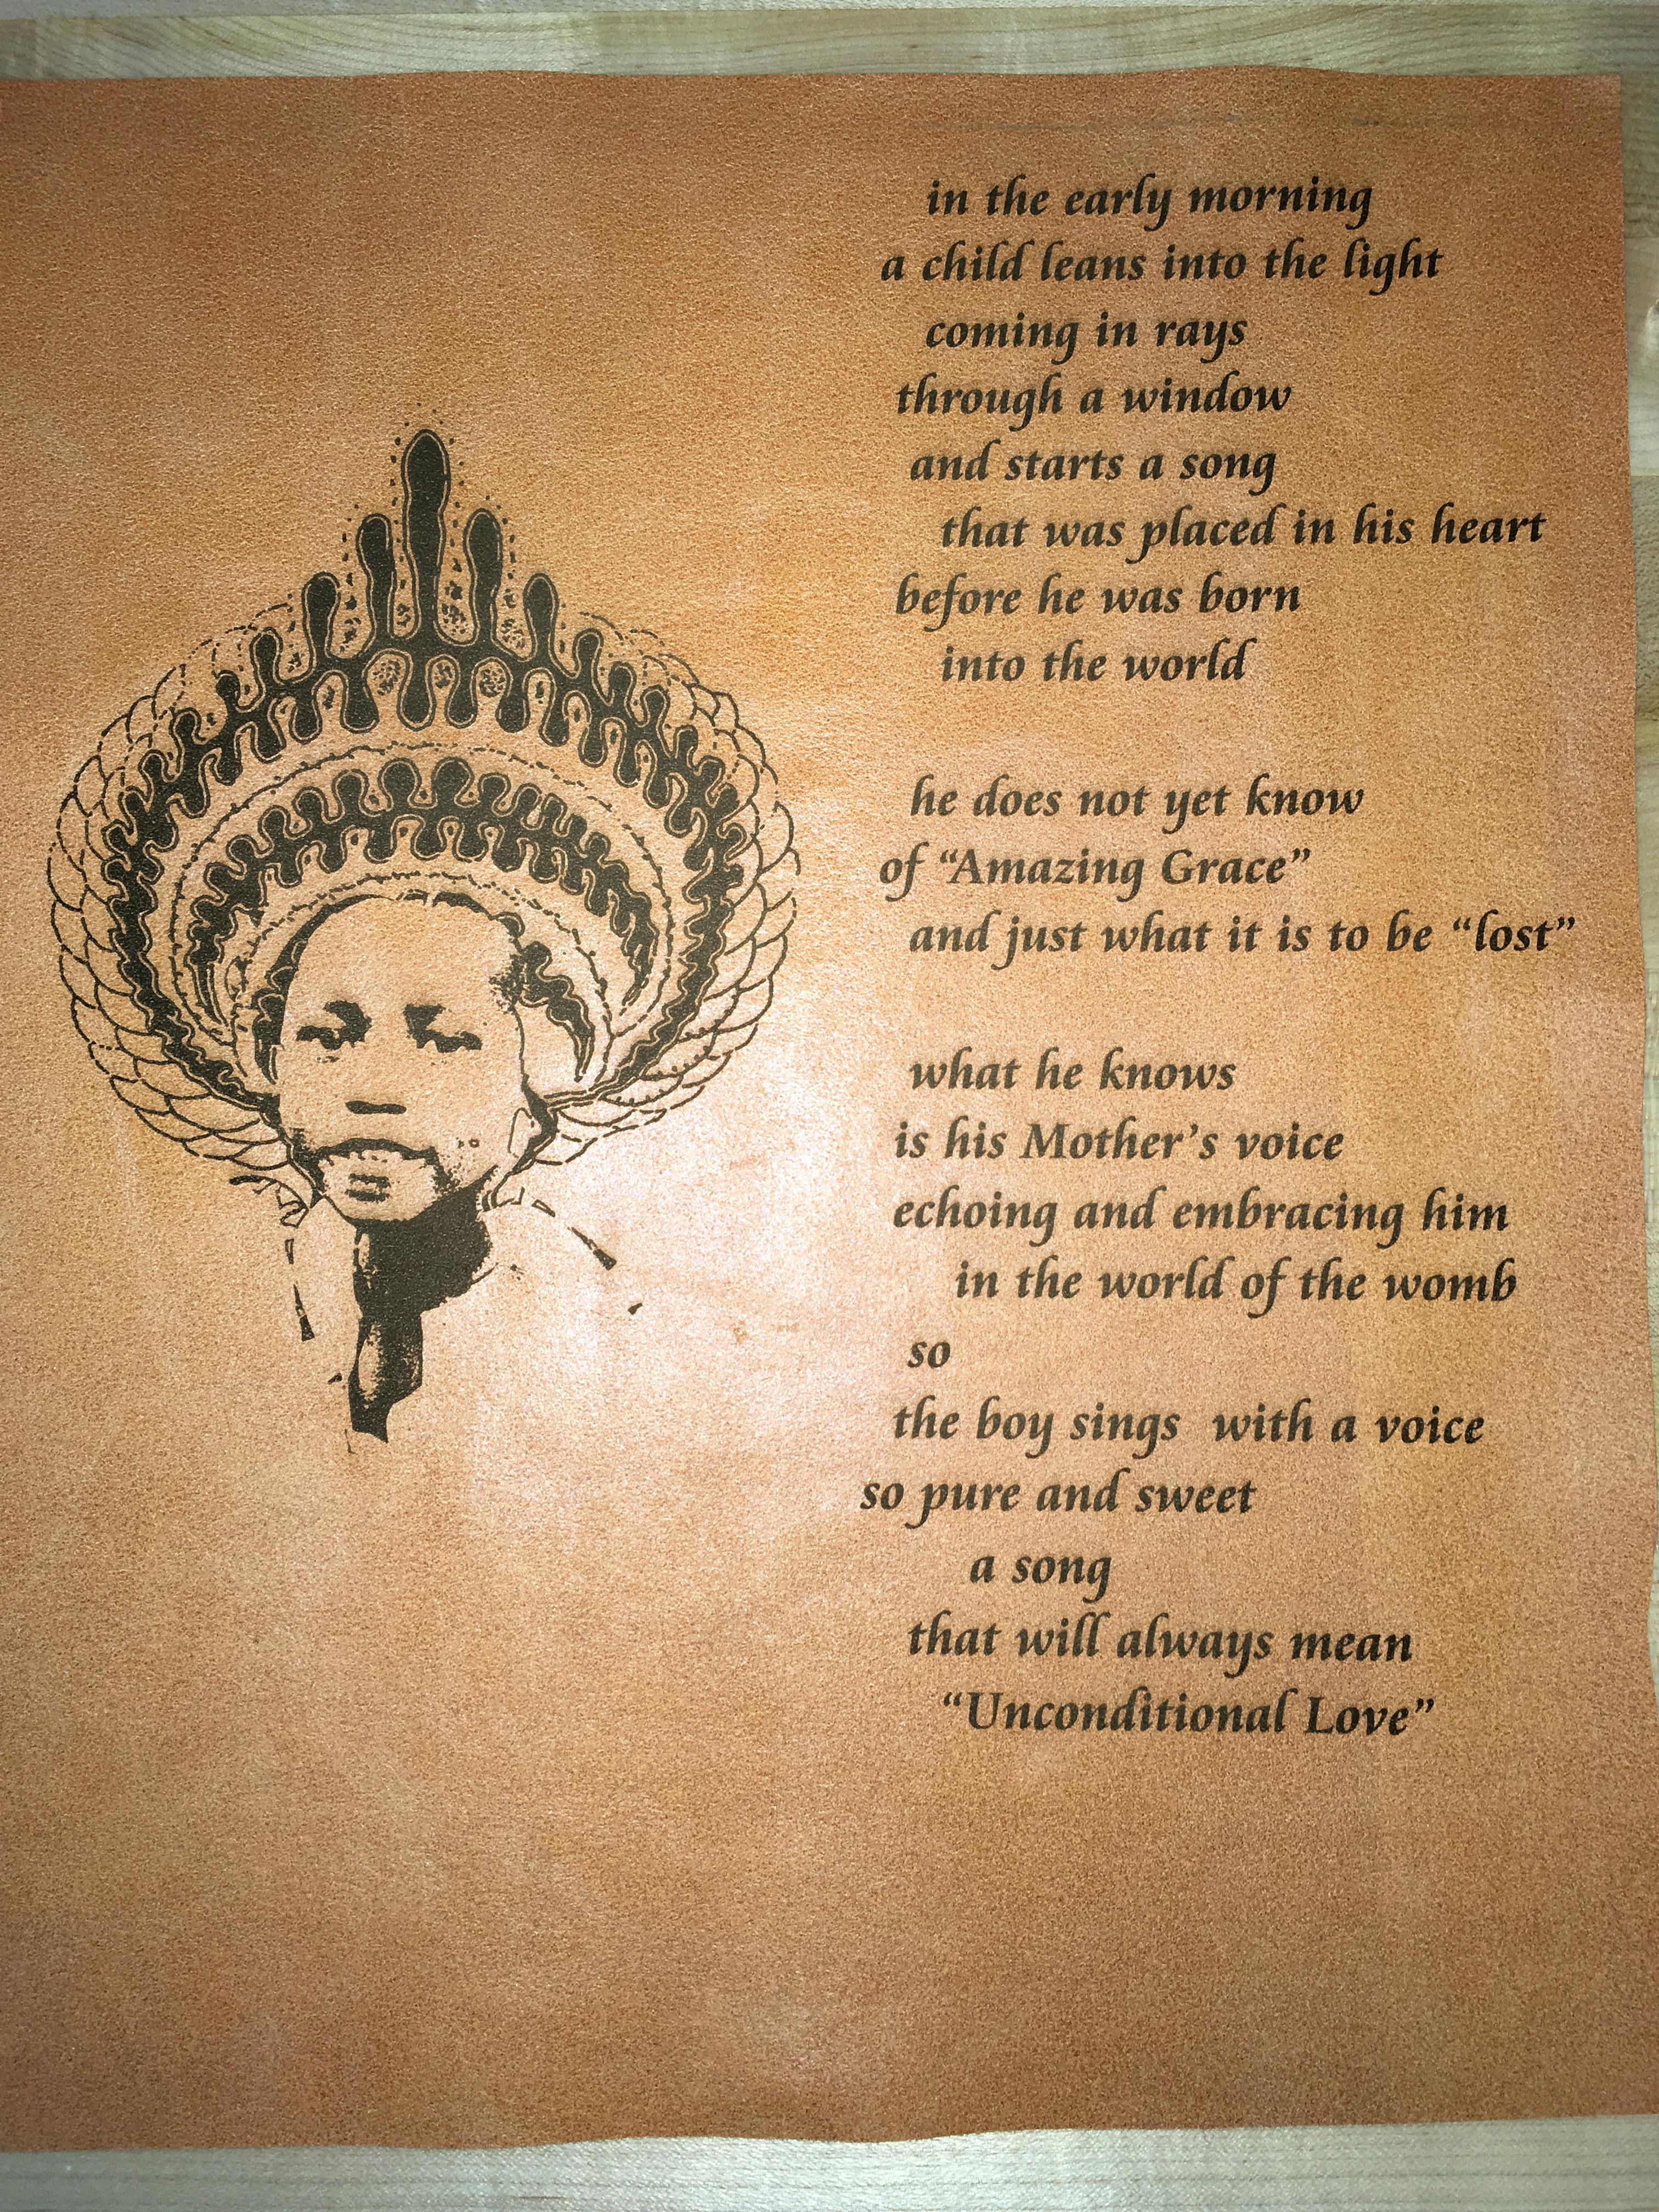 in the early morning
a child leans into the light
coming in rays
through a window
and starts a song
that was placed in his heart
before he was born
into the world
he does not yet know
of “Amazing Grace”
and just what it is to be “lost”
what he knows
is his Mother’s voice
echoing and embracing him
in the world of the womb
so
the boy sings with a voice
so pure and sweet
a song
that will always mean
“Unconditional Love”